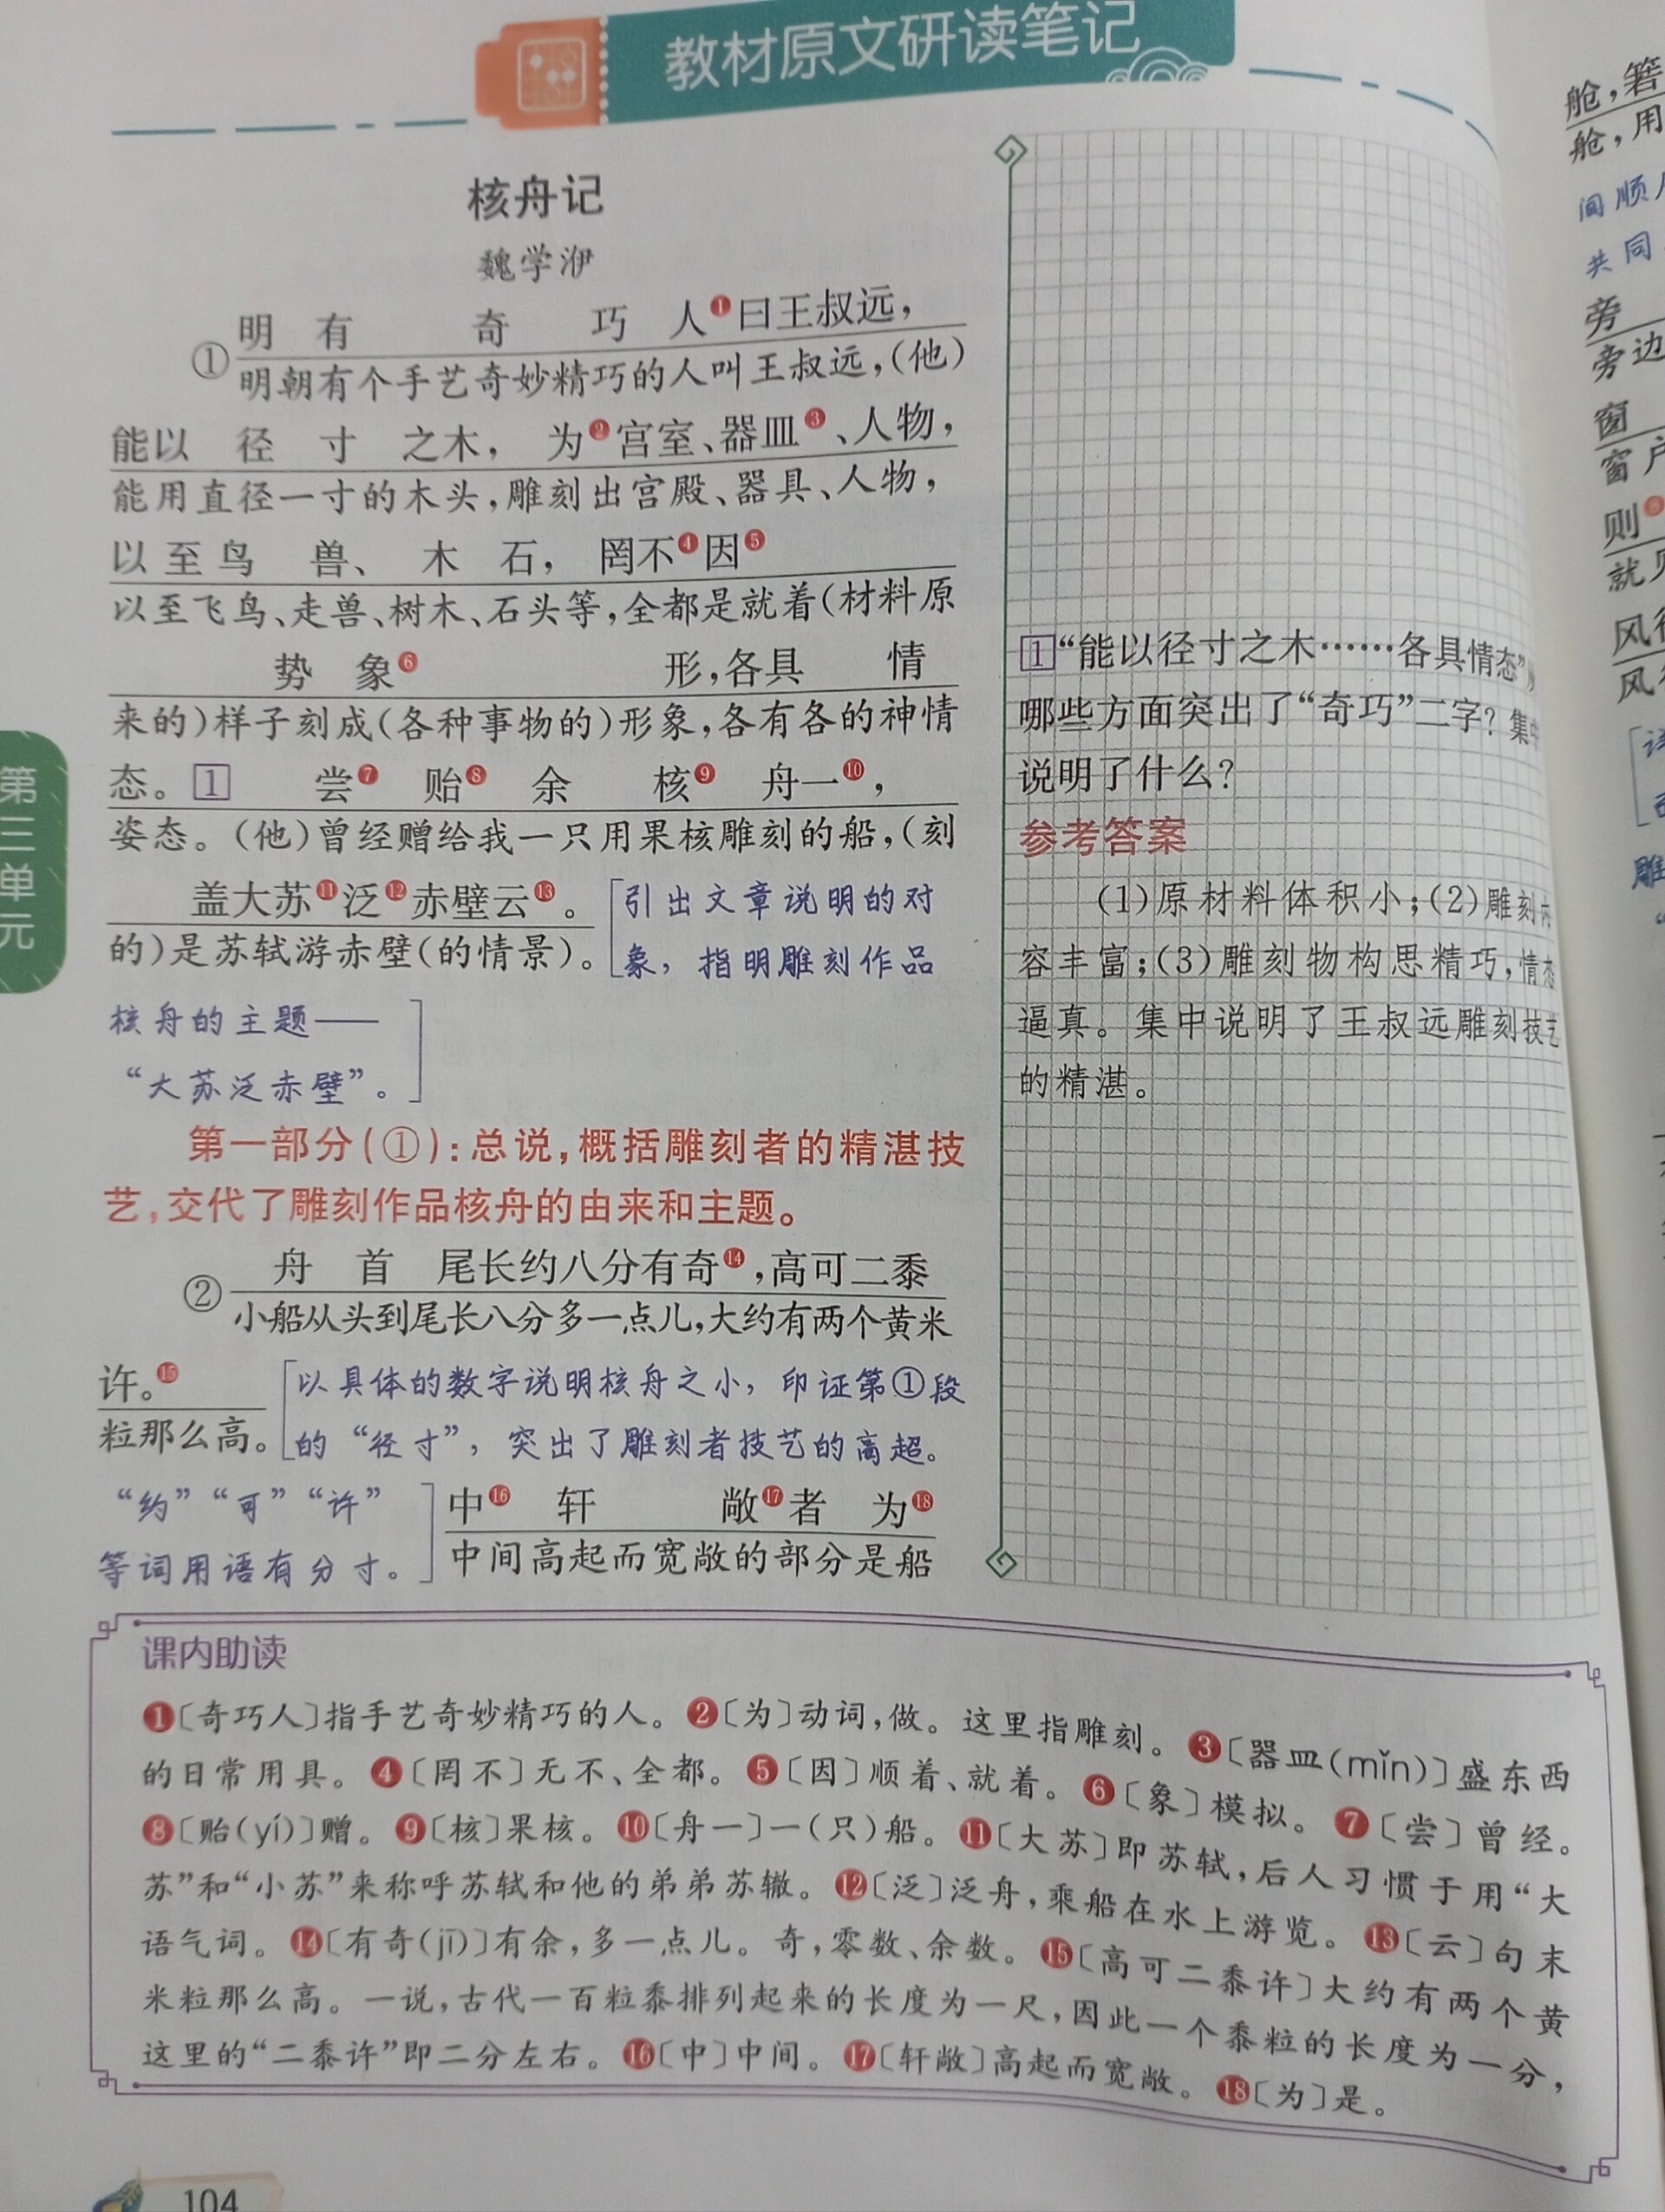 教材原文研读笔记
核舟记
魏学洢
①明有奇巧人❶曰王叔远，
明朝有个手艺奇妙精巧的人叫王叔远，(他)
能以径寸之木，为❷宫室、器皿❸、人物，
能用直径一寸的木头，雕刻出宫殿、器具、人物，
以至鸟兽、木石，罔不❹因❺
以至飞鸟、走兽、树木、石头等，全都是就着(材料原
势象❻形，各具情
来的)样子刻成(各种事物的)形象，各有各的神情
态。1尝❼贻❽余核❾舟一❿，
姿态。(他)曾经赠给我一只用果核雕刻的船，(刻
盖大苏⓫泛⓬赤壁云⓭。[引出文章说明的对
的)是苏轼游赤壁(的情景)。象，指明雕刻作品
核舟的主题——
“大苏泛赤壁”。]
第一部分(①)：总说，概括雕刻者的精湛技
艺，交代了雕刻作品核舟的由来和主题。
②舟首尾长约八分有奇⓮，高可二黍
小船从头到尾长八分多一点儿，大约有两个黄米
许。⓯[以具体的数字说明核舟之小，印证第①段
粒那么高。的“径寸”，突出了雕刻者技艺的高超。
“约”“可”“许”中⓰轩敞⓱者为⓲
等词用语有分寸。]中间高起而宽敞的部分是船
1“能以径寸之木……各具情态”
哪些方面突出了“奇巧”二字？集中
说明了什么？
参考答案
(1)原材料体积小；(2)雕刻内
容丰富；(3)雕刻物构思精巧，情态
逼真。集中说明了王叔远雕刻技艺
的精湛。
课内助读
❶〔奇巧人〕指手艺奇妙精巧的人。❷〔为〕动词，做。这里指雕刻。❸〔器皿(mǐn)〕盛东西
的日常用具。❹〔罔不〕无不、全都。❺〔因〕顺着、就着。❻〔象〕模拟。❼〔尝〕曾经。
❽〔贻(yí)〕赠。❾〔核〕果核。❿〔舟一〕一(只)船。⓫〔大苏〕即苏轼，后人习惯于用“大
苏”和“小苏”来称呼苏轼和他的弟弟苏辙。⓬〔泛〕泛舟，乘船在水上游览。⓭〔云〕句末
语气词。⓮〔有奇(jī)〕有余，多一点儿。奇，零数、余数。⓯〔高可二黍许〕大约有两个黄
米粒那么高。一说，古代一百粒黍排列起来的长度为一尺，因此一个黍粒的长度为一分，
这里的“二黍许”即二分左右。⓰〔中〕中间。⓱〔轩敞〕高起而宽敞。⓲〔为〕是。
第三单元
104
舱，箬
舱，用
间顺
共同
旁
旁边
窗
窗户
则
就
风
风
雕